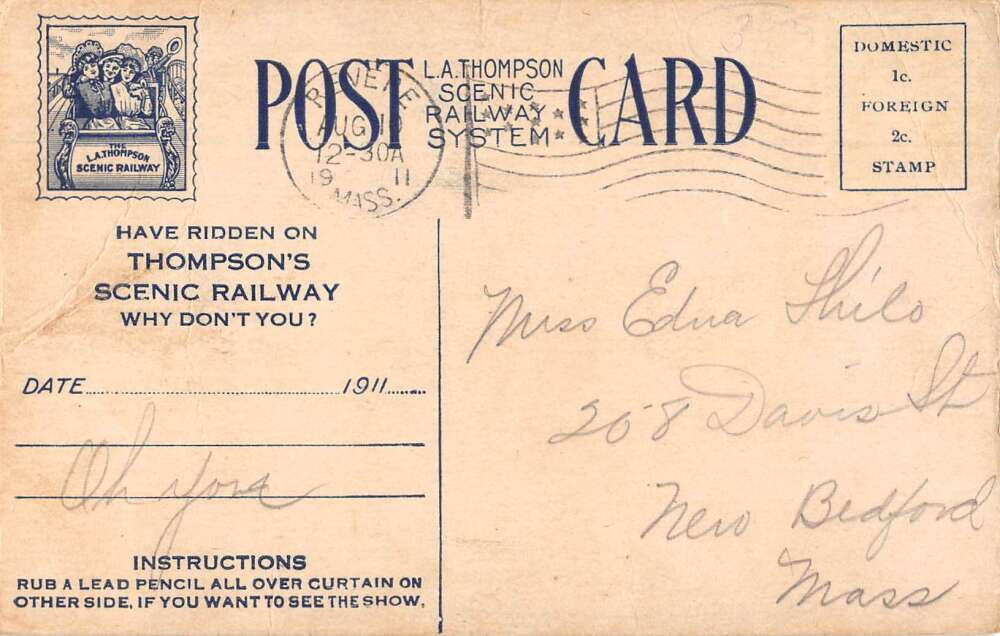 THE
L.A. THOMPSON
SCENIC RAILWAY
POST CARD
L.A. THOMPSON
SCENIC
RAILWAY
SYSTEM
AUG 1
12-30A
19 11
MASS.
DOMESTIC
1c.
FOREIGN
2c.
STAMP
HAVE RIDDEN ON
THOMPSON'S
SCENIC RAILWAY
WHY DON'T YOU?
DATE 1911
Oh you
INSTRUCTIONS
RUB A LEAD PENCIL ALL OVER CURTAIN ON
OTHER SIDE, IF YOU WANT TO SEE THE SHOW.
Miss Edna Shilo
208 Davis St
New Bedford
Mass